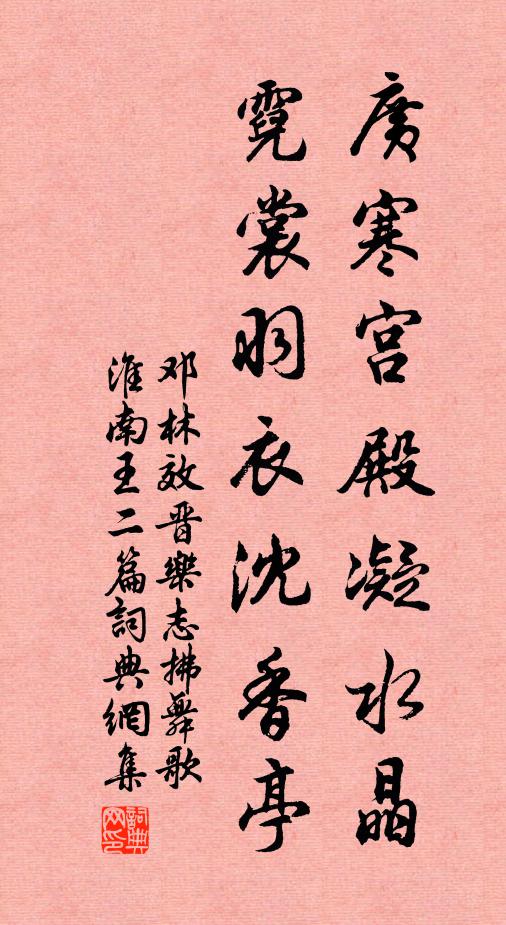 廣寒宮殿凝水晶
霓裳羽衣沈香亭
邓林效晋樂志拂舞歌
淮南王二篇詞典網集
詞典网印